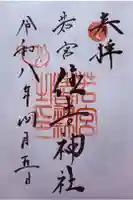 奉拝
若宮
住吉神社
令和八年四月五日